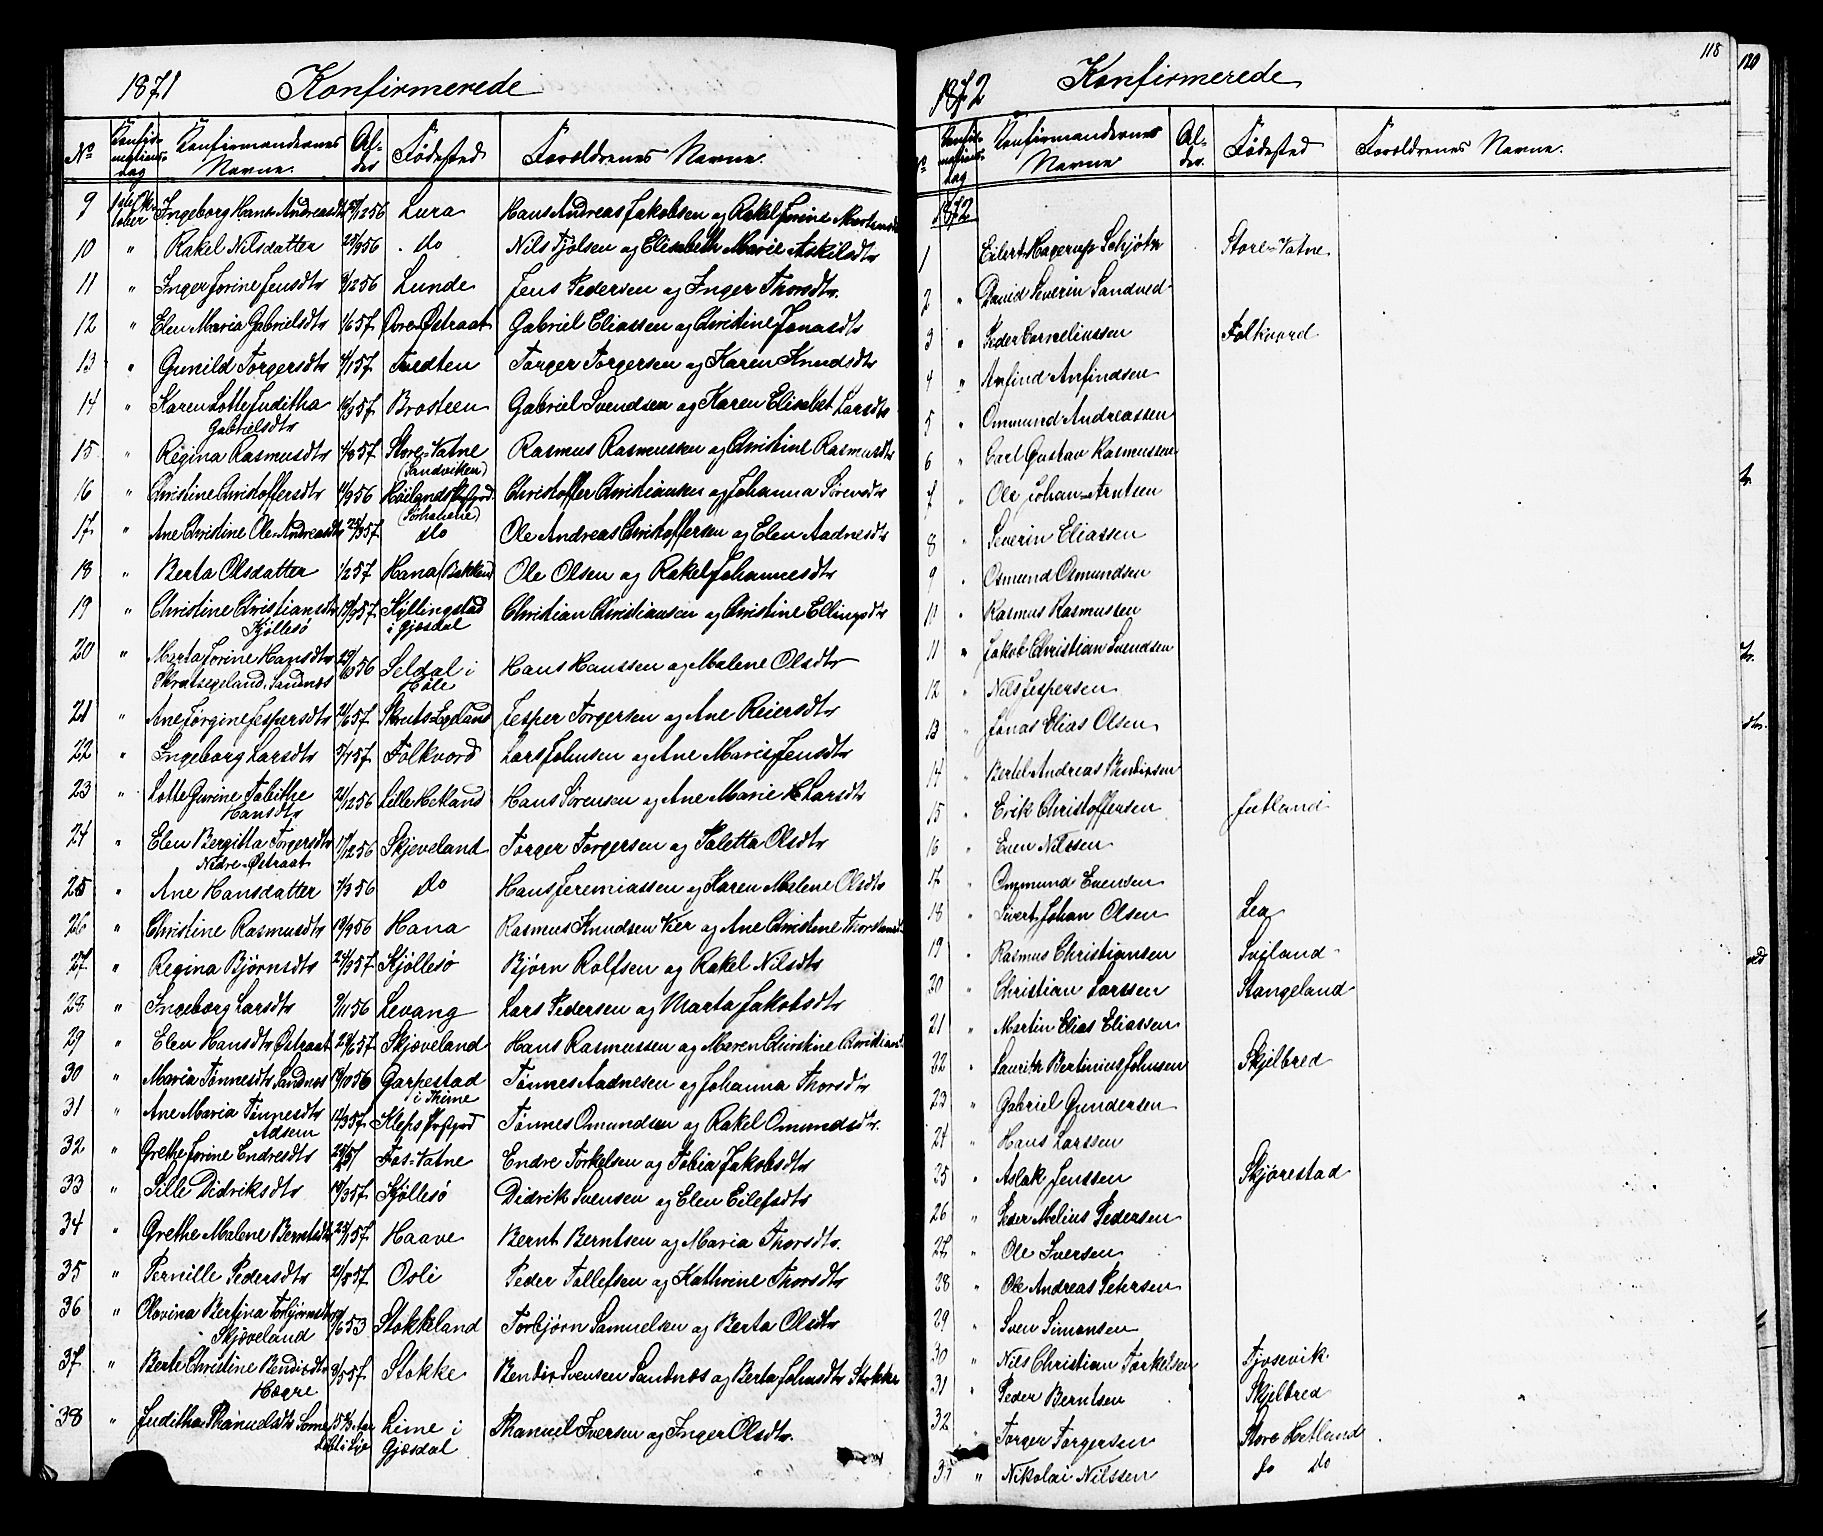 1871 Konfirmerede
No Konfir-mations-dag Konfirmandernes Navne. Al-der Fødested Forældrenes Navne.
9 Ingeborg Hans Andreasdtr 12 56 Lura Hans Andreas Jakobsen og Rakel Jorine
10 " Rakel Nilsdatter 25/9 56 do Nils Tjølsen og Elisabeth Marie Askilsdtr
11 " Inger Jorine Jensdtr /12 56 Lunde Jens Pedersen og Inger Thorsdtr.
12 " Elen Maria Gabrielsdtr 1/6 57 Øvre-Østraat Gabriel Eliassen og Christine Jonasdtr
13 " Gunild Torgersdtr 4/1 57 Tredten Torger Torgersen og Karen Knudsdtr
14 " Karen Lotte Juditha Brosteen Gabriel Svendsen og Karen Elisabet Larsdtr
Gabrielsdtr
15 " Regina Rasmusdtr 4/8 57 Store-Vatne Rasmus Rasmussen og Christine Rasmusdtr
(Sandviken)
16 " Christine Christoffersdtr 4/9 56 Høilands Christoffer Christiansen og Johanna Sørensdtr
17 " Ane Christine Ole Andreasdtr 57 do Ole Andreas Christoffersen og Elen Aadnesdtr
18 " Berta Olsdatter 1/2 57 Hana (Bakken) Ole Olsen og Rakel Johannesdtr
19 " Christine Christiansdtr 57 Kyllingstad Christian Christiansen og Christine Ellingsdtr
Kjøllesø i Gjæsdal
20 " Marta Jorine Hansdtr 56 Seldal i Hans Hanssen og Malene Olsdtr
Skrudsegeland, Sandnæs Høle
21 " Ane Jørgine Jespersdtr 2/6 57 Skruts-Egeland Jesper Torgersen og Ane Reiersdtr
22 " Ingeborg Larsdtr 3/1 57 Folkvord Lars Johnsen og Ane Marie Jensdtr
23 " Lotte Gurine Tabithe 2/12 56 Lille Hetland Hans Sørensen og Ane Marie Larsdtr
Hansdtr
24 " Elen Bergitta Torgersdtr 17/12 56 Skjeveland Torger Torgersen og Taletta Olsdtr
Nedre-Østraat
25 " Ane Hansdatter 7/3 56 do Hans Jeremiassen og Karen Malene Olsdtr
26 " Christine Rasmusdtr 19/9 56 Hana Rasmus Knudsen Vier og Ane Christine
27 " Regina Bjørnsdtr 24/3 57 Kjøllesø Bjørn Rolfsen og Rakel Nilsdtr
28 " Ingeborg Larsdtr 9/11 56 Levang Lars Pedersen og Marta Jakobsdtr
29 " Elen Hansdtr Østraat 29/6 57 Skjæveland Hans Rasmussen og Maren Christine
30 " Maria Tønnesdtr Sandnæs 19/10 56 Garpestad Tønnes Aadnesen og Johanna Thorsdtr
i Thime
31 " Ane Maria Tønnesdtr 12/3 57 Kleps Prstgjld Tønnes Omundsen og Rakel Omundsdtr.
Adsem
32 " Grethe Jorine Endresdtr Fos-Vatne Endre Torkelsen og Tobia Jakobsdtr
33 " Sille Didriksdtr 19/3 57 Kjøllesø Didrik Svensen og Elen Eilefsdtr
34 " Grethe Malene Berntsdtr 57 Haave Bernt Berntsen og Maria Thorsdtr.
35 " Pernille Pedersdtr 2/8 57 Osli Peder Tollefsen og Kathrine Thorsdtr
36 " Olovina Bertina Torbjørnsdtr 6 53 Stokkeland Torbjørn Samuelsen og Berta Olsdtr
Skjæveland
37 " Berte Christine Bendixdtr 9/5 57 Stokke Bendix Svensen Sandnæs og Berta Johnsdtr Stokke
Hogre
38 " Juditha Thanuelsdtr Some Lime i Thanuel Iversen og Inger Olsdtr.
Gjæsdal
118
1872 Konfirmerede
No Konfir-mations-dag Konfirmandernes Navne Al-der. Fødested Forældrenes Navne.
1872
1 Eilert Hagerup Schjøtz Store-Vatne
2 " David Severin Sandved
3 " Peder Corneliussen Folkvord
4 " Anfind Anfindsen
5 " Ommund Andreassen
6 " Carl Gustav Rasmussen
7 " Ole Johan Arntsen
8 " Severin Eliassen
9 " Osmund Osmundsen
10 " Rasmus Rasmussen
11 " Jakob Christian Svendsen
12 " Nils Jespersen
13 " Jonas Elias Olsen
14 " Bertel Andreas Bendixsen
15 " Erik Christoffersen Jutland
16 " Even Nilssen
17 " Ommund Evensen
18 " Sivert Johan Olsen Lea
19 " Rasmus Christiansen Sviland
20 " Christian Larssen Stangeland
21 " Martin Elias Eliassen
22 " Laurits Bertinius Johnsen Skjelbred
23 " Gabriel Gundersen
24 " Hans Larssen
25 " Aslak Jenssen Skjørestad
26 " Peder Melius Pedersen
27 " Ole Iversen
28 " Ole Andreas Petersen
29 " Sven Simonsen
30 " Nils Christian Torkelsen Tjosevik
31 " Peder Berntsen Skjelbred
32 " Torger Torgersen Store Hetland
33 " Nikolai Nilssen do do
120